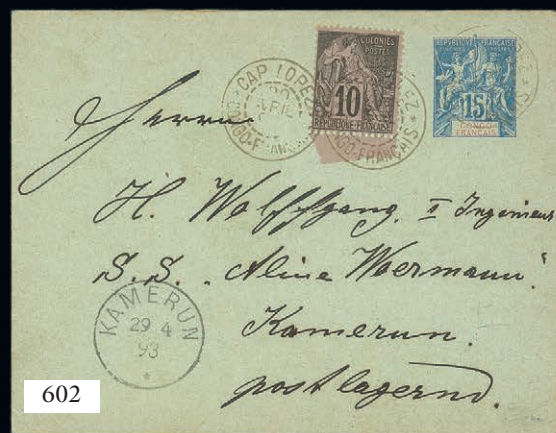 CAP LOPEZ
20
AVRIL
CONGO-FRANÇAIS
COLONIES
POSTES
10
REPUBLIQUE FRANÇAISE
CONGO-FRANÇAIS
REPUBLIQUE FRANÇAISE
15
CONGO
FRANÇAIS
Herrn
H. Wolffgang. I Ingenieur
S. S. „Aline Woermann“
Kamerun.
postlagernd.
KAMERUN
29 4
93
*
602